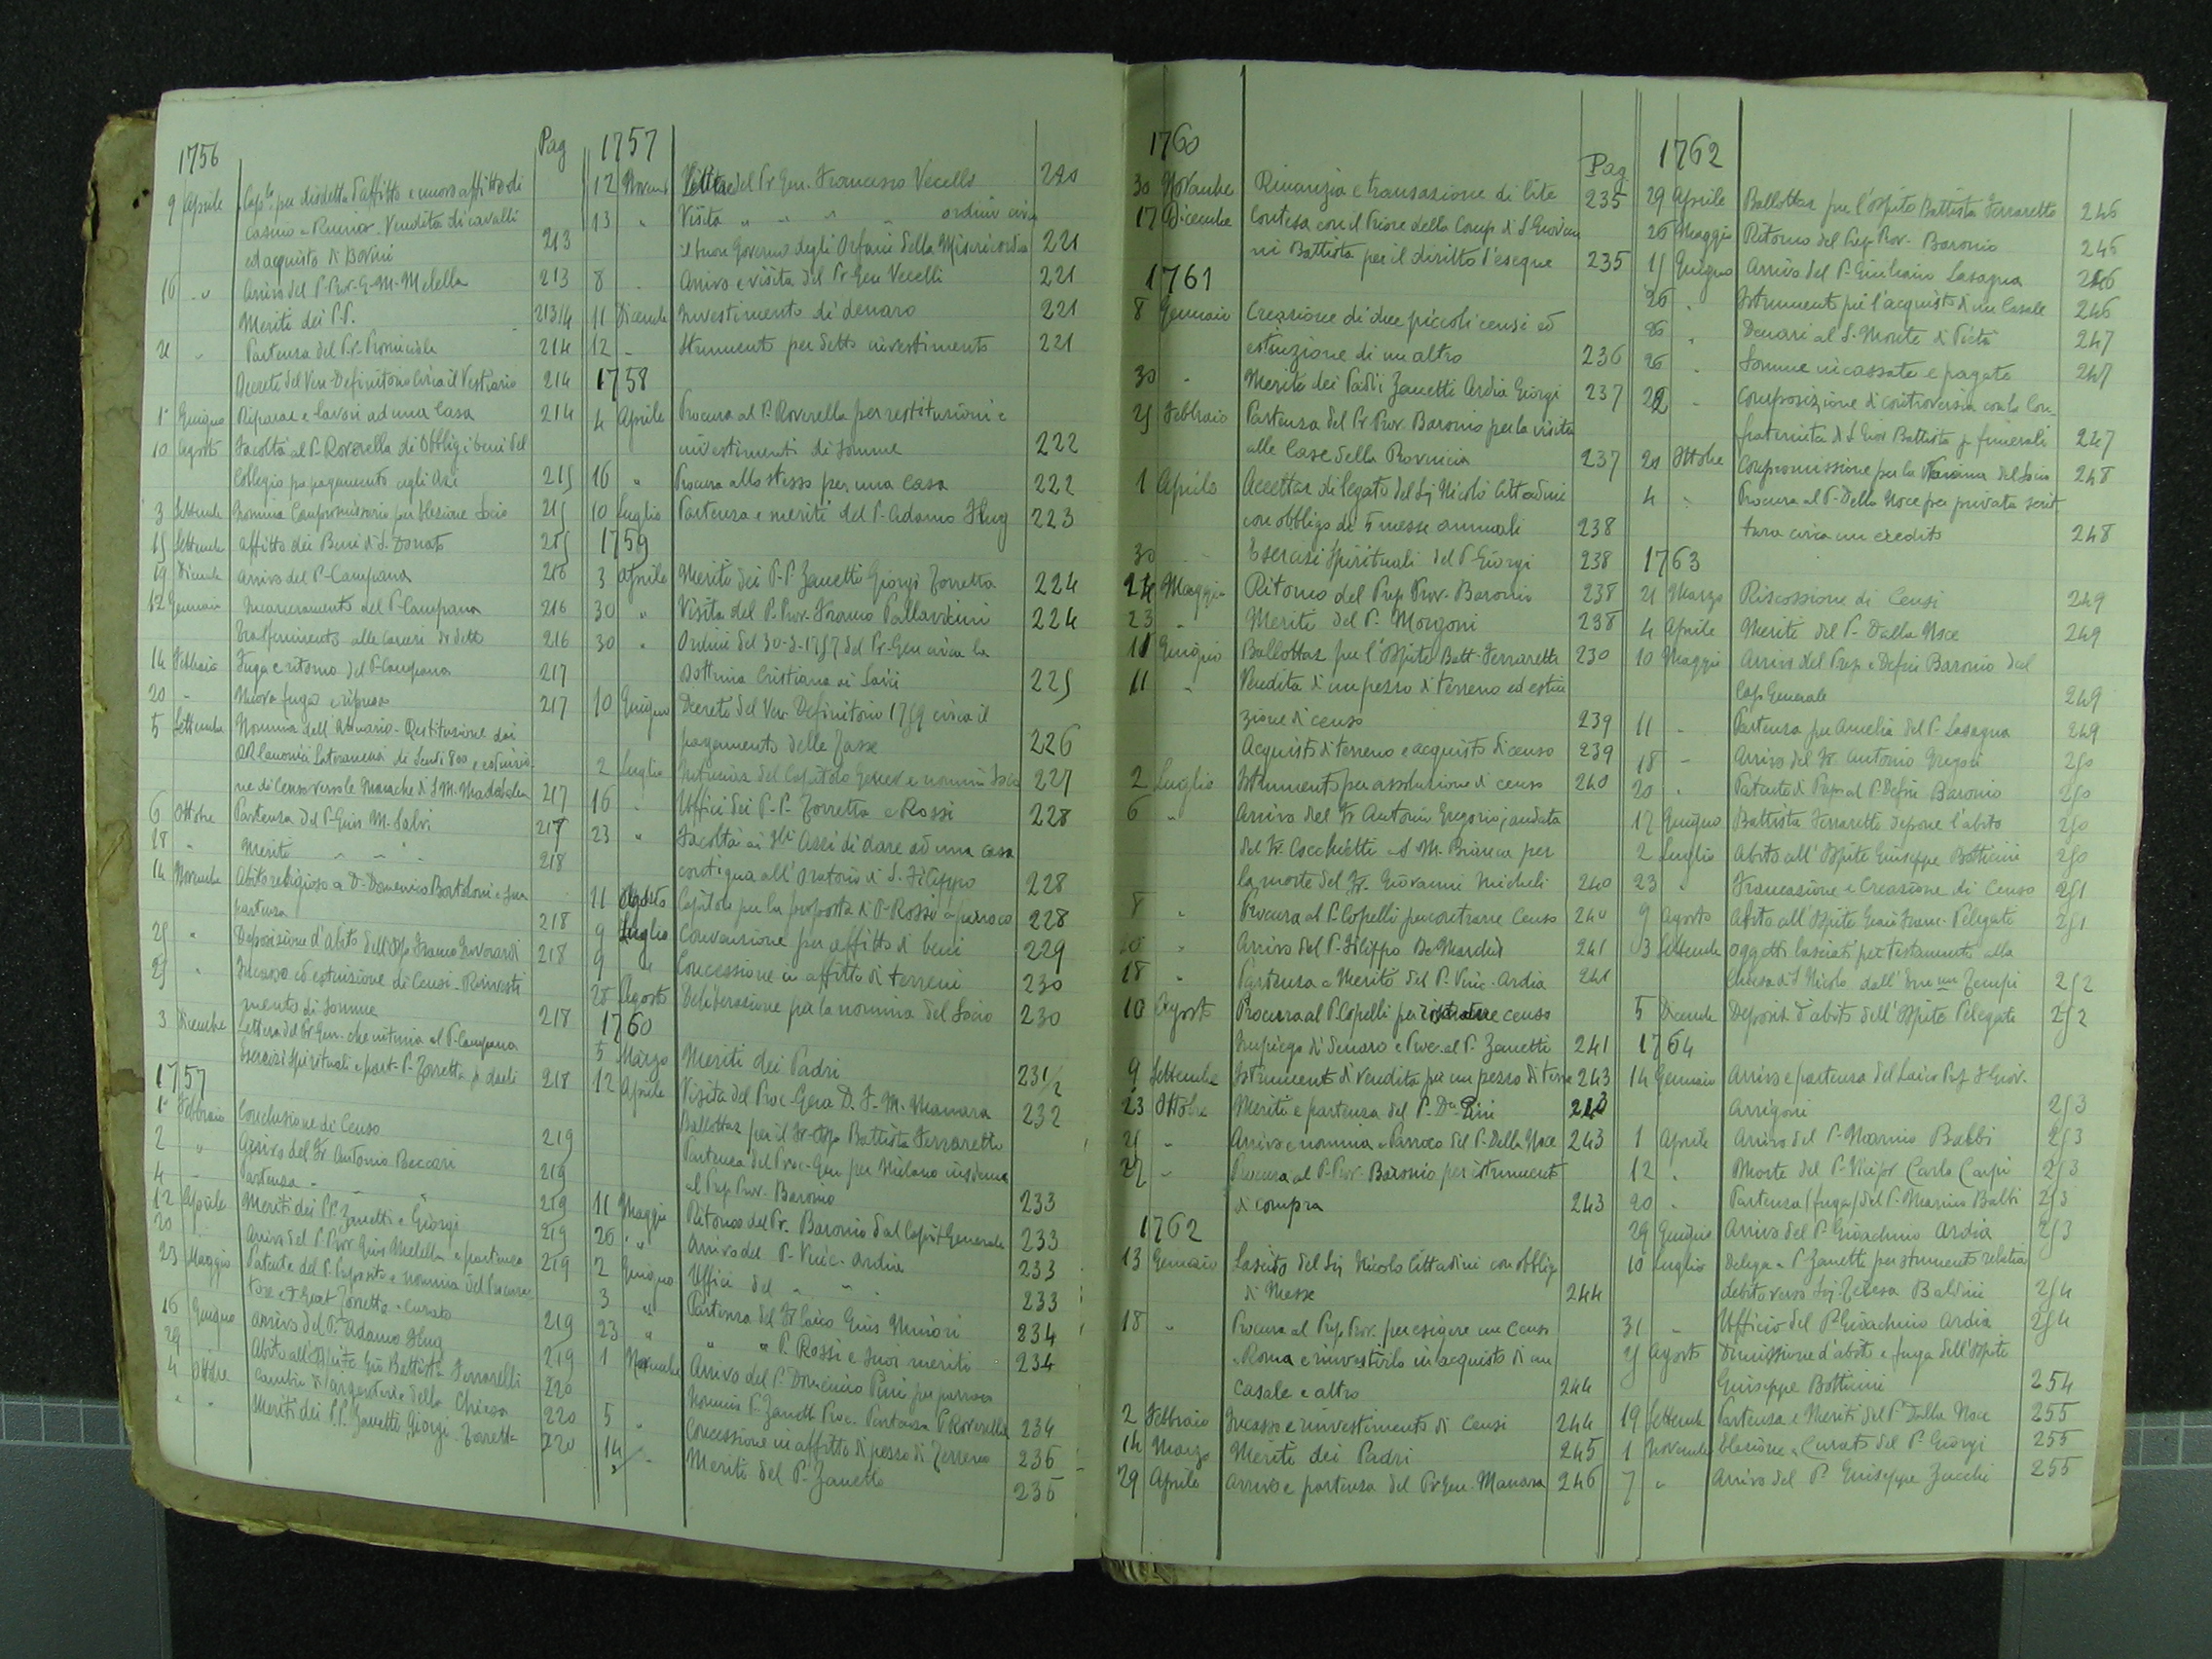 1756
Pag
9 Aprile Cap.lo per disdetta d'affitto e nuovo affitto di
Casino a Rumior. Vendita di cavalli
ed acquisto di Bovini 213
16 " Arrivo del P. Prov. G. M. Melella 213
Meriti dei P.P. 213/4
21 " Partenza del P.r. Provinciale 214
Decreto del Ven. Definitorio circa il Vestiario 214
1° Giugno Riparaz. e lavori ad una Casa 214
10 Agosto Facoltà al P. Roverella di Obblig. i beni del
Collegio pagamento agli Asi 215
3 Settembre Nomina Compromissario per Elezione Socio 215
15 Settembre Affitto dei Beni di S. Donato 215
19 Dicembre Arrivo del P. Campana 216
12 Gennaio Incarceramento del P. Campana 216
Trasferimento alle Carceri di detto 216
14 Febbraio Fuga e ritorno del P. Campana 217
20 " Nuova fuga e ripresa 217
5 Settembre Nomina dell'Attuario. Restituzione dai
Canonici Lateranensi di Scudi 800 e estinzio
ne di Censo verso le Monache di S. M. Maddalena 217
6 Ottobre Partenza del P. Gius. M. Salvi 217
28 " Meriti " " " 218
14 Novembre Abito religioso a D. Domenico Bartoloni e sua
partenza 218
25 " Deposizione d'abito dell'Osp. Franco Everardi 218
25 " Incasso ed estinzione di Censi. Reinvesti
mento di somme 218
3 Dicembre Lettera del Pr. Gen. che intima al P. Campana
Esercizi Spirituali e part. P. Torretta 218
1757
1° Febbraio Conclusione di Censo 219
2 " Arrivo del Fr. Antonio Beccari 219
4 " Partenza " " " 219
12 Aprile Meriti dei PP. Zanetti e Giorgi 219
20 " Arrivo del P. Prov. Gius. Melella e partenza 219
23 Maggio Patente del P. Preposito e nomina del Procura
tore e P. Gaet. Torretta a Curato 219
16 Giugno Arrivo del P. Adamo Hug 219
29 Abito all'Ospite Gio. Battista Ferraretti 220
4 Ottobre Cambio di argenterie della Chiesa 220
" " Meriti dei P.P. Zanetti, Giorgi. Torretta 220
1757
12 Novemb Lettera del Pr. Gen. Francesco Vecelli 220
13 " Visita " " " " ordini circa
il buon Governo degli Orfani della Misericordia 221
8 " Arrivo e visita del Pr. Gen. Vecelli 221
11 Dicembre Investimento di denaro 221
12 " Strumento per detto investimento 221
1758
4 Aprile Procura al P. Roverella per restituzioni e
investimenti di somme 222
16 " Procura allo stesso per una casa 222
10 Luglio Partenza e meriti del P. Adamo Hug 223
1759
3 Aprile Merito dei P.P. Zanetti Giorgi Torretta 224
30 " Visita del P. Prov. Franco Pallavicini 224
30 " Ordini del 30-3-1757 del Pr. Gen. circa la
Dottrina Cristiana ai laici 225
10 Giugno Decreto del Ven. Definitorio 1759 circa il
pagamento delle Tasse 226
2 Luglio Intimaz. del Capitolo Gener. e nomina Socio 227
16 " Uffici dei P.P. Torretta e Rossi 228
23 " Facoltà ai Sig. Assi di dare ad una casa
contigua all'oratorio di S. Filippo 228
11 Agosto Capitolo per la proposta di P. Rossi a parroco 228
9 Luglio Convenzione per affitto di beni 229
9 " Concessione in affitto di terreni 230
25 Agosto Deliberazione per la nomina del Socio 230
1760
5 Marzo Meriti dei Padri 231/2
12 Aprile Visita del Proc. Gen. D. F. M. Manara 232
Ballottaz. per il Fr. Osp. Battista Ferraretti
Partenza del Proc. Gen. per Milano insieme
al Prep. Prov. Baronio 233
11 Maggio Ritorno del Pr. Baronio dal Capit. Generale 233
26 " Arrivo del P. Vinc. Ardia 233
2 Giugno Uffici del " " 233
3 " Partenza del Fr. laico Gius. Minori 234
23 " " " P. Rossi e suoi meriti 234
1 Novembre Arrivo del P. Domenico Pini per parroco
5 " Nomina P. Zanetti Proc. Partenza P. Roverella 234
14 " Concessione in affitto di pezzo di Terreno 235
Meriti del P. Zanetto 235
1760
Pag
30 Novembre Rinunzia e transazione di lite 235
17 Dicembre Contesa con il Priore della Comp. di S. Giovan
ni Battista per il diritto d'eseque 235
1761
8 Gennaio Creazione di due piccoli censi ed
estinzione di un altro 236
30 " Merito dei Padri Zanetti Ardia Giorgi 237
25 Febbraio Partenza del Pr. Prov. Baronio per la visita
alle Case della Provincia 237
1 Aprile Accettaz. di legato del Sig. Nicolò Cittadini
con obbligo di 5 messe annuali 238
30 " Esercizi Spirituali del P. Giorgi 238
24 Maggio Ritorno del Prep. Prov. Baronio 238
23 " Meriti del P. Monzoni 238
11 Giugno Ballottaz. per l'Ospite Batt. Ferraretti 230
11 " Vendita di un pezzo di terreno ed estin
zione di censo 239
Acquisto di terreno e acquisto di censo 239
2 Luglio Istrumento per assoluzione di censo 240
6 " Arrivo del Fr. Antonio Gregorio; andata
del Fr. Cocchietti a S. M. Bianca per
la morte del Fr. Giovanni Micheli 240
8 " Procura al P. Copelli per contrarre Censo 240
20 " Arrivo del P. Filippo De Mardis 241
18 " Partenza e Merito del P. Vinc. Ardia 241
10 Agosto Procura al P. Copelli per censo
Impiego di denaro e Proc. al P. Zanetti 241
9 Settembre Istrumento di vendita per un pezzo di terra 243
23 Ottobre Merito e partenza del P. Dn. Pini 243
25 " Arrivo e nomina a Parroco del P. Della Noce 243
27 " Procura al P. Prov. Baronio per istrumento
di compra 243
1762
13 Gennaio Lascito del Sig. Nicolo Cittadini con obbligo
di Messe 244
18 " Procura al Prep. Prov. per esigere un Censo
a Roma e investirlo in acquisto di un
casale e altro 244
2 Febbraio Incasso e rinvestimento di Censi 244
14 Marzo Meriti dei Padri 245
29 Aprile Arrivo e partenza del Pr. Gen. Manara 246
1762
29 Aprile Ballottaz. per l'Ospite Battista Ferraretto 246
26 Maggio Ritorno del Prep. Prov. Baronio 246
15 Giugno Arrivo del P. Giuliano Lasagna 246
26 " Istrumento per l'acquisto di un Casale 246
26 " Denari al S. Monte di Pietà 247
26 " Somme incassate e pagate 247
22 " Composizione di controversia con la Con
fraternita di S. Giov. Battista p. funerali 247
21 Ottobre Compromissione per la Nomina del Socio 248
4 " Procura al P. Della Noce per privata scrit
tura circa un credito 248
1763
21 Marzo Riscossione di Censi 249
4 Aprile Merito del P. Dalla Noce 249
10 Maggio Arrivo del Prep. e Defin. Baronio dal
Cap. Generale 249
11 " Partenza per Amelia del P. Lasagna 249
18 " Arrivo del Fr. Antonio Gregori 250
20 " Patente di Prep. al P. Defin. Baronio 250
17 Giugno Battista Ferraretto depone l'abito 250
2 Luglio Abito all'Ospite Giuseppe Botticini 250
23 " Francazione e Creazione di Censo 251
9 Agosto Abito all'Ospite Gian Franc. Pelegati 251
3 Settembre Oggetti lasciati per testamento alla
Chiesa di S. Nicolo dall'Em.mo Tempi 252
5 Dicemb Deposiz. d'abito dell'Ospite Pelegati 252
1764
14 Gennaio Arrivo e partenza del Laico Prof. F. Giov.
Arrigoni 253
1 Aprile Arrivo del P. Marino Balbi 253
12 " Morte del P. Vicepr. Carlo Carpi 253
20 " Partenza (fuga) del P. Marino Balbi 253
29 Giugno Arrivo del P. Gioachino Ardia 253
10 Luglio Delega a P. Zanetti per strumento relativo
debito verso Sig. Teresa Baldini 254
31 " Ufficio del P. Gioachino Ardia 254
25 Agosto Dimissione d'abito e fuga dell'Ospite
Giuseppe Botticini 254
19 Settembre Partenza e Meriti del P. Dalla Noce 255
1 Novembre Elezione a Curato del P. Giorgi 255
7 " Arrivo del P. Giuseppe Zucchi 255